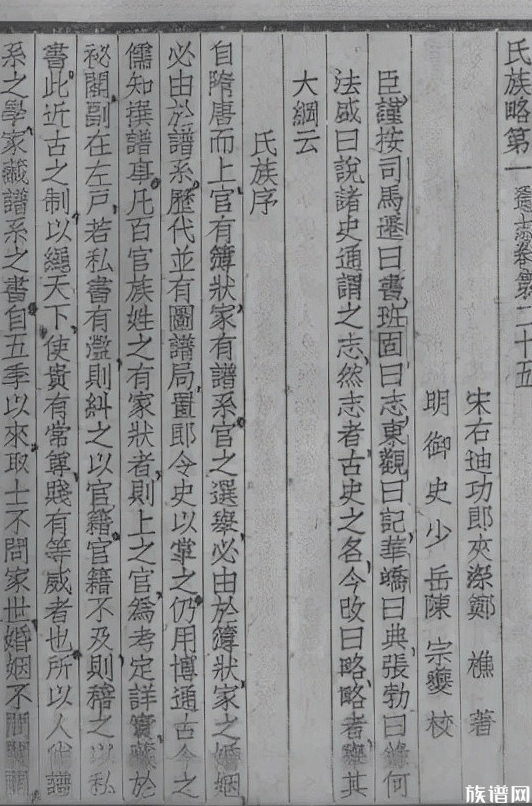 氏族略第一 通志卷第二十五
宋右迪功郎夾漈鄭 樵 著
明 御 史 少 岳 陳 宗夔 校
臣謹按司馬遷曰書班固曰志東觀曰記華嶠曰典張勃曰錄何
法盛曰說諸史通謂之志然志者古史之名今改曰略略者舉其
大綱云
氏族序
自隋唐而上官有簿狀家有譜系官之選舉必由於簿狀家之婚姻
必由於譜系歷代並有圖譜局置郎令史以掌之仍用博通古今之
儒知撰譜事凡百官族姓之有家狀者則上之官爲考定詳實藏於
祕閣副在左戶若私書有濫則糾之以官籍官籍不及則稽之以私
書此近古之制以繩天下使貴有常尊賤有等威者也所以人尙譜
系之學家藏譜系之書自五季以來取士不問家世婚姻不問閥閱
族谱网